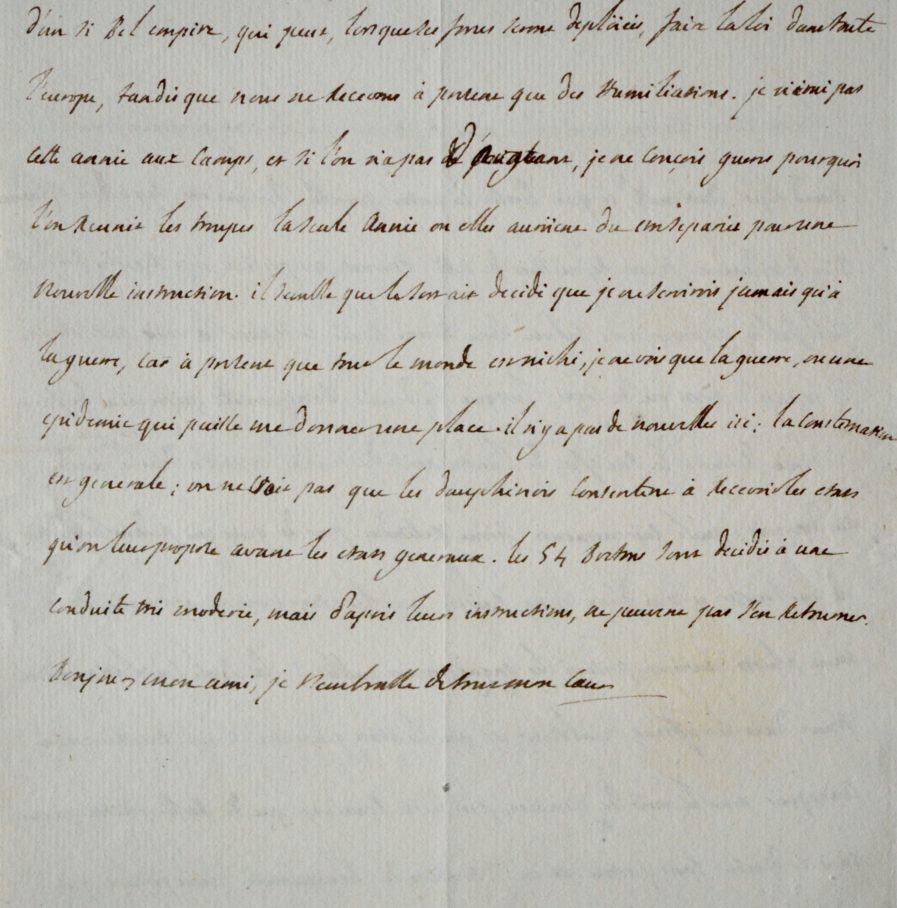 d'un si bel empire, qui peut, lorsque ses forces seront deploiées, faire la loi dans toute
l'europe, tandis que nous ne recevons à present que des humiliations. je n'irai pas
cette année aux camps, et si l'on n'a pas, je ne conçois gueres pourquoi
l'on reunit les troupes la seule année ou elles auroient du etre separées pour une
nouvelle instruction. il semble que le sort ait decidé que je ne servirois jamais qu'à
la guerre, car à present que tout le monde est niché, je ne vois que la guerre, ou une
epidemie qui puisse me donner une place. il n'y a pas de nouvelles ici; la consternation
est generale; on ne croit pas que les dauphinois consentent à recevoir les etats
qu'on leur propose avant les etats generaux. les 54 Bretons sont decidés à une
conduite tres moderée, mais d'après leurs instructions, ne peuvent pas s'en retourner.
Bonjour, mon ami, je t'embrasse de tout mon coeur